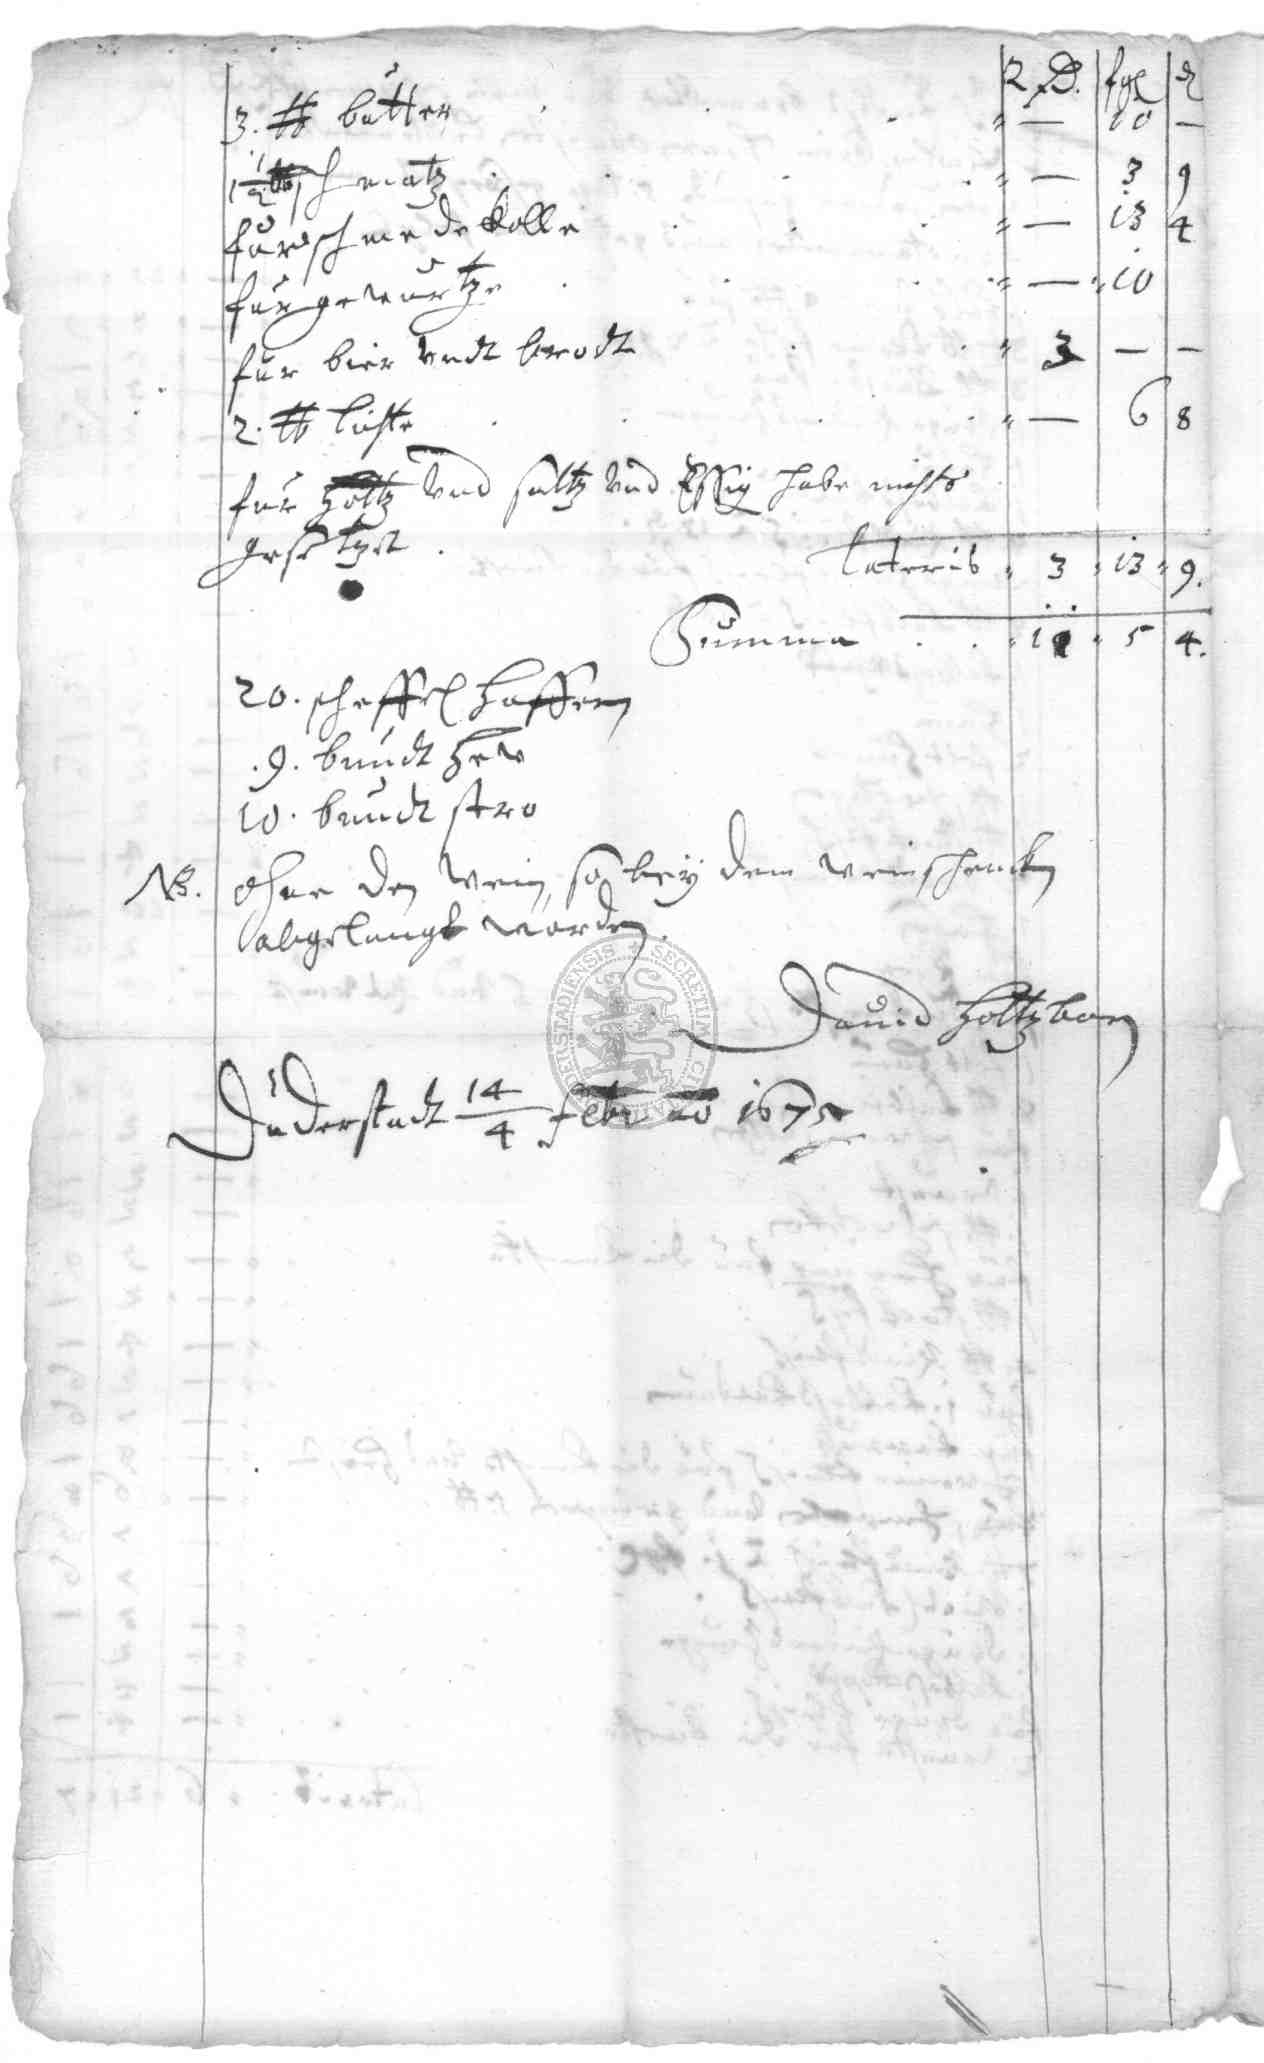 R D. fgl ₰
3. ℔ butter " — 10 —
1 1/2 ℔ schmaltz " — 3 9
für schmede kolle " — 13 4
für gewürtze " — " 10
für bier undt brodt " 3 — —
2. ℔ lichte " — 6 8
für holtz und saltz und Essig habe nichts
gesetzet.
Lateris " 3 " 13 " 9.
Summa " 11 " 5 4.
20. scheffel haffern
.9. bundt hew
10. bundt stro
NB. ohne den wein, so bey dem weinschencken
abgelangt worden.
David Holtzborn
Duderstadt 14/4 febr ao 1675
SECRETUM CIVITATIS DUDERSTADIENSIS